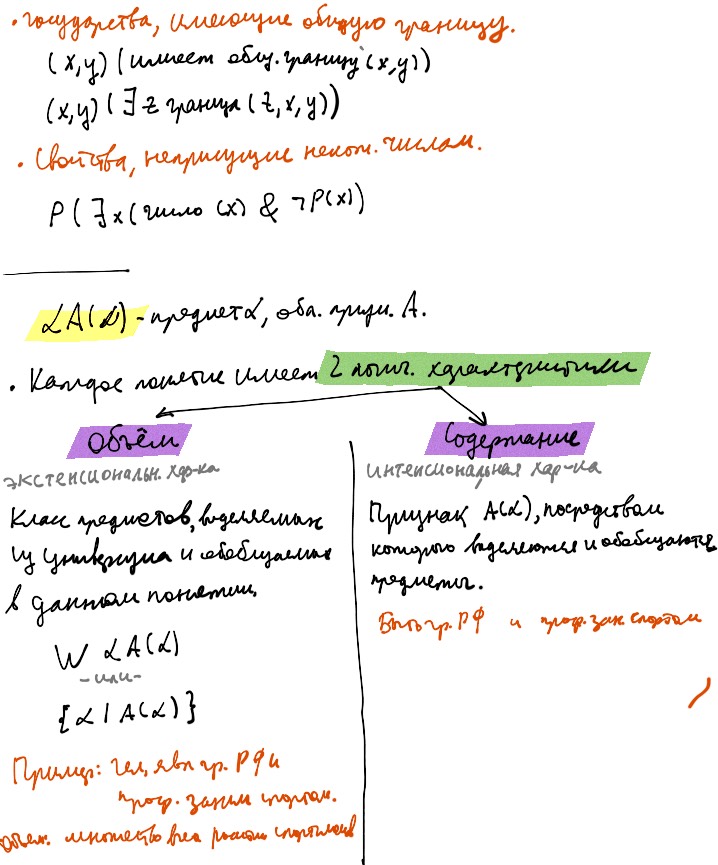 • государства, имеющие общую границу.
(x,y) (имеет общ. границу (x,y))
(x,y) (∃z граница (z,x,y))
• Свойства, неприсущие неком. числам.
P(∃x(число (x) & ¬P(x))
αA(α) - предмет α, обл. призн. A.
• Каждое понятие имеет 2 логич. характеристики
Объём
экстенсиональн. хар-ка
Класс предметов, выделяемых
из универсума и обобщаемых
в данном понятии.
W αA(α)
-или-
{α | A(α)}
Пример: чел, явл гр. РФ и
проф. заним спортом.
Объем: множество всех россий спортсменов
Содержание
интенсиональная хар-ка
Признак A(α), посредством
которого выделяются и обобщаются
предметы.
Быть гр. РФ и проф. зан. спортом